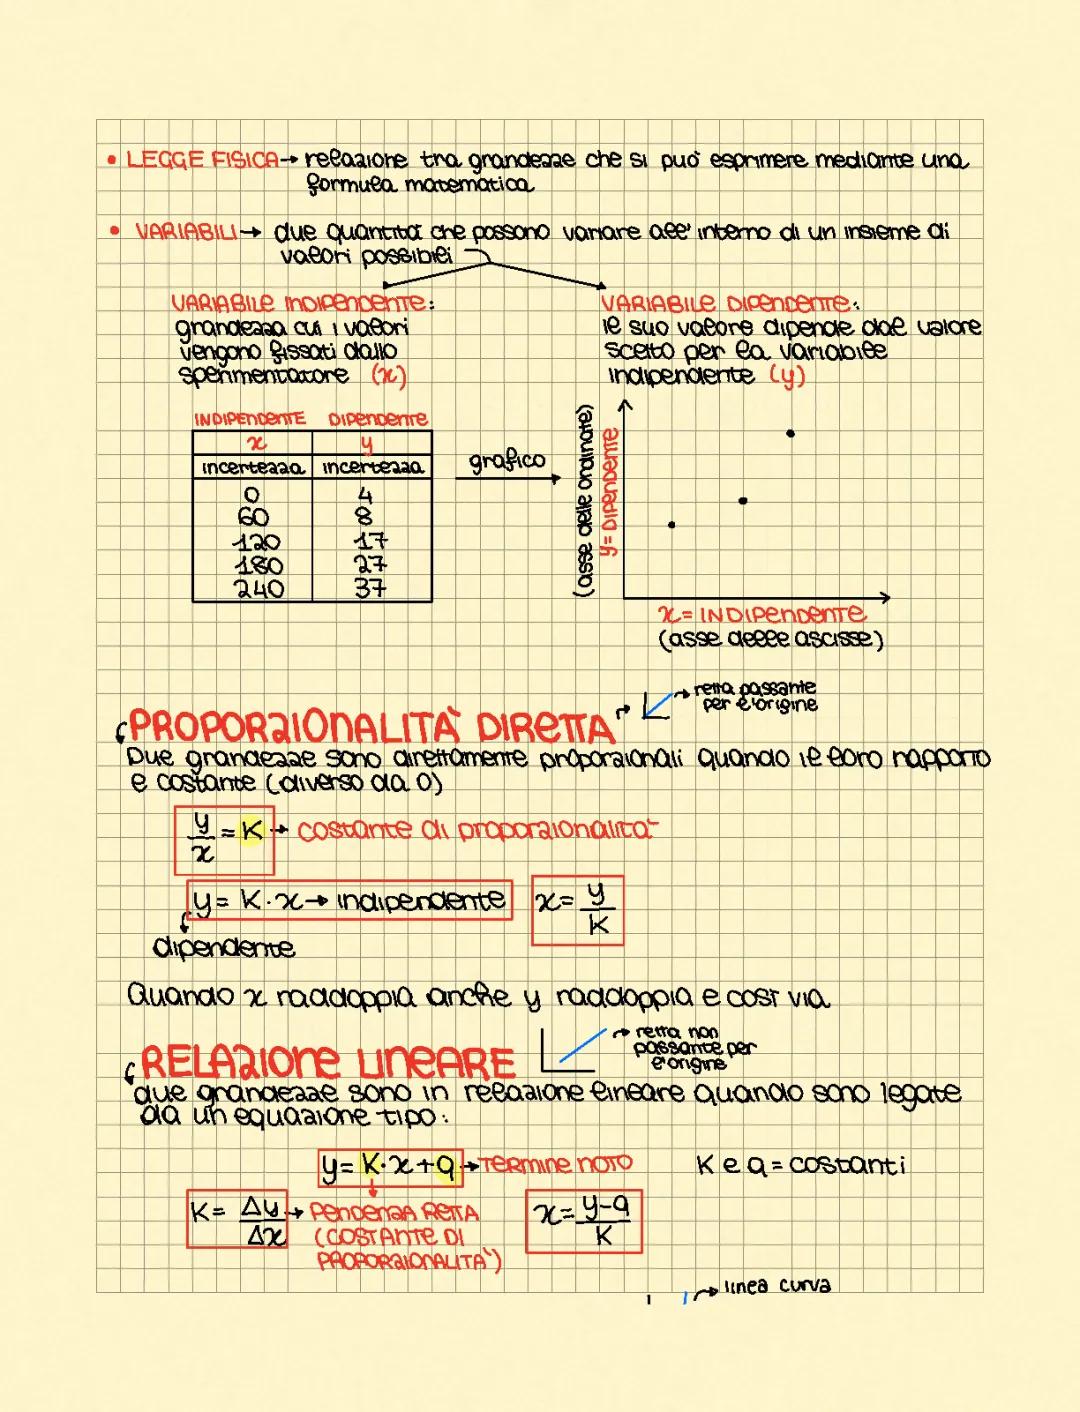 • LEGGE FISICA → relazione tra grandezze che si può esprimere mediante una
formula matematica
• VARIABILI → due quantità che possono variare all'interno di un insieme di
valori possibili
VARIABILE INDIPENDENTE:
grandezza cui i valori
vengono fissati dallo
sperimentatore (x)
VARIABILE DIPENDENTE:
il suo valore dipende dal valore
scelto per la variabile
indipendente (y)
INDIPENDENTE DIPENDENTE
x y
incertezza incertezza
0 4
60 8
120 17
180 27
240 37
grafico
(asse delle ordinate)
y = DIPENDENTE
x = INDIPENDENTE
(asse delle ascisse)
→ retta passante
per l'origine
PROPORZIONALITÀ DIRETTA
Due grandezze sono direttamente proporzionali quando il loro rapporto
è costante (diverso da 0)
y/x = K → costante di proporzionalità
y = K · x → indipendente
x = y/K
dipendente
Quando x raddoppia anche y raddoppia e così via
→ retta non
passante per
l'origine
RELAZIONE LINEARE
due grandezze sono in relazione lineare quando sono legate
da un equazione tipo:
y = K · x + q → TERMINE NOTO K e q = costanti
K = Δy/Δx → PENDENZA RETTA
(COSTANTE DI
PROPORZIONALITÀ)
x = y-q/K
→ linea curva